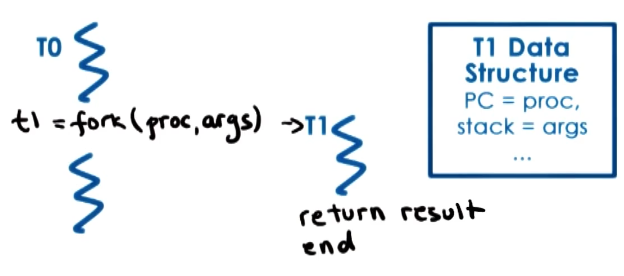 T0
t1 = fork(proc,args) →T1
return result
end
T1 Data
Structure
PC = proc,
stack = args
...